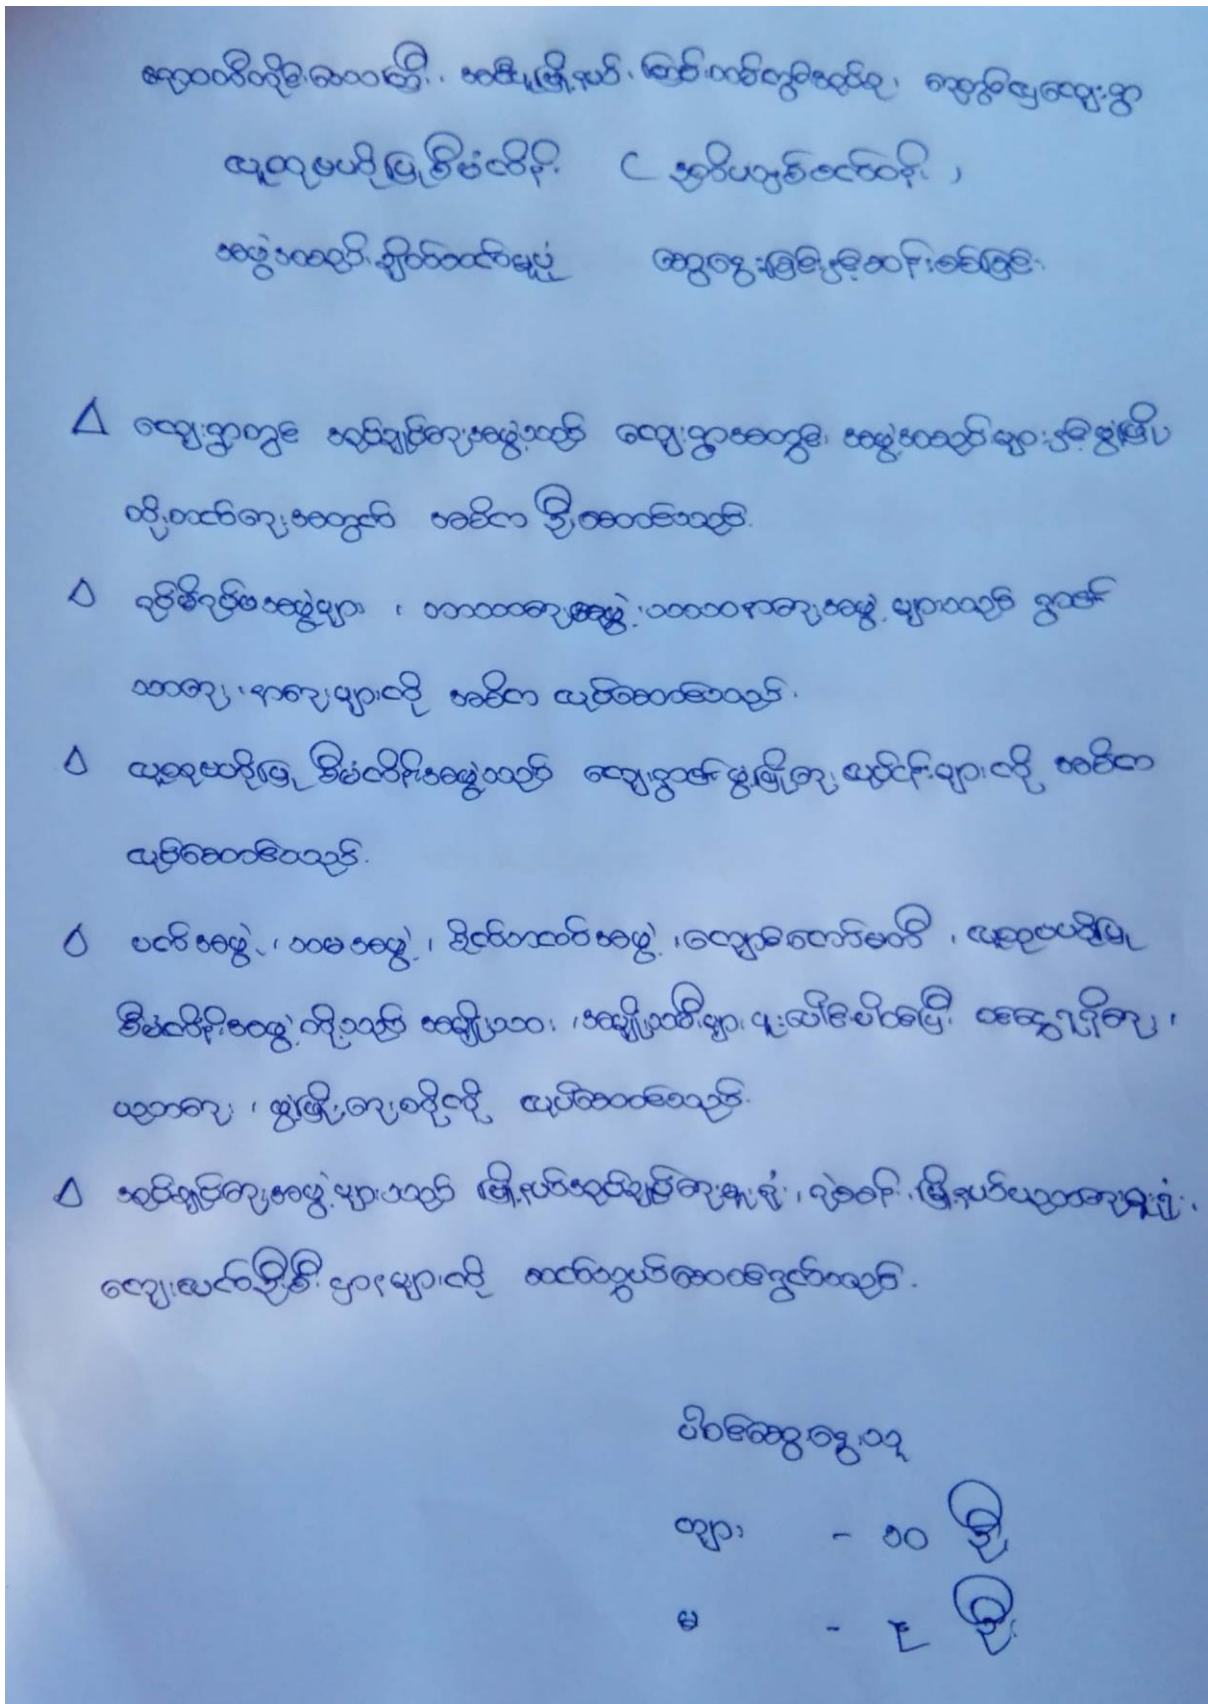 ဧရာဝတီတိုင်းဒေသကြီး၊ အမြို့နယ်၊ ကျေးရွာ
လူထုဗဟိုပြုစီမံကိန်း ( )
အဖွဲ့အစည်းချိတ်ဆက်မှုပုံ ဆွေးနွေးခြင်းနှင့်ဆန်းစစ်ခြင်း
Δ ကျေးရွာတွင် အုပ်ချုပ်ရေးအဖွဲ့သည် ကျေးရွာအတွင်း အဖွဲ့အစည်းများနှင့်ဖွံ့ဖြိုး
တိုးတက်ရေးအတွက် အဓိက ဦးဆောင်သည်.
Δ ရပ်မိရပ်ဖအဖွဲ့များ ၊ ဘာသာရေးအဖွဲ့ ၊ သာသနာရေးအဖွဲ့ များသည် ရွာ၏
သာရေး ၊ နာရေးများကို အဓိက လုပ်ဆောင်သည်.
Δ လူထုဗဟိုပြု စီမံကိန်းအဖွဲ့သည် ကျေးရွာ၏ ဖွံ့ဖြိုးရေး လုပ်ငန်းများကို အဓိက
လုပ်ဆောင်သည်.
Δ အဖွဲ့ ၊ အဖွဲ့ ၊ အဖွဲ့ ၊ ကျောင်းကော်မတီ ၊ လူထုဗဟိုပြု
စီမံကိန်းအဖွဲ့ တို့သည် အမျိုးသား ၊ အမျိုးသမီးများ ပူးပေါင်းပါဝင်ပြီး ငွေရရှိရေး ၊
ပညာရေး ၊ ဖွံ့ဖြိုးရေးစသို့ကို လုပ်ဆောင်သည်.
Δ အုပ်ချုပ်ရေးအဖွဲ့ များသည် မြို့နယ်အုပ်ချုပ်ရေးမှူးရုံး ၊ ရဲစခန်း ၊ မြို့နယ်ပညာရေးမှူးရုံး ၊
ကျေးလက်ဦးစီးဌာနများကို ဆက်သွယ်ဆောင်ရွက်သည်.
ပါဝင်ဆွေးနွေးသူ
ကျား - ၁၀ ဦး
မ - ၃၂ ဦး